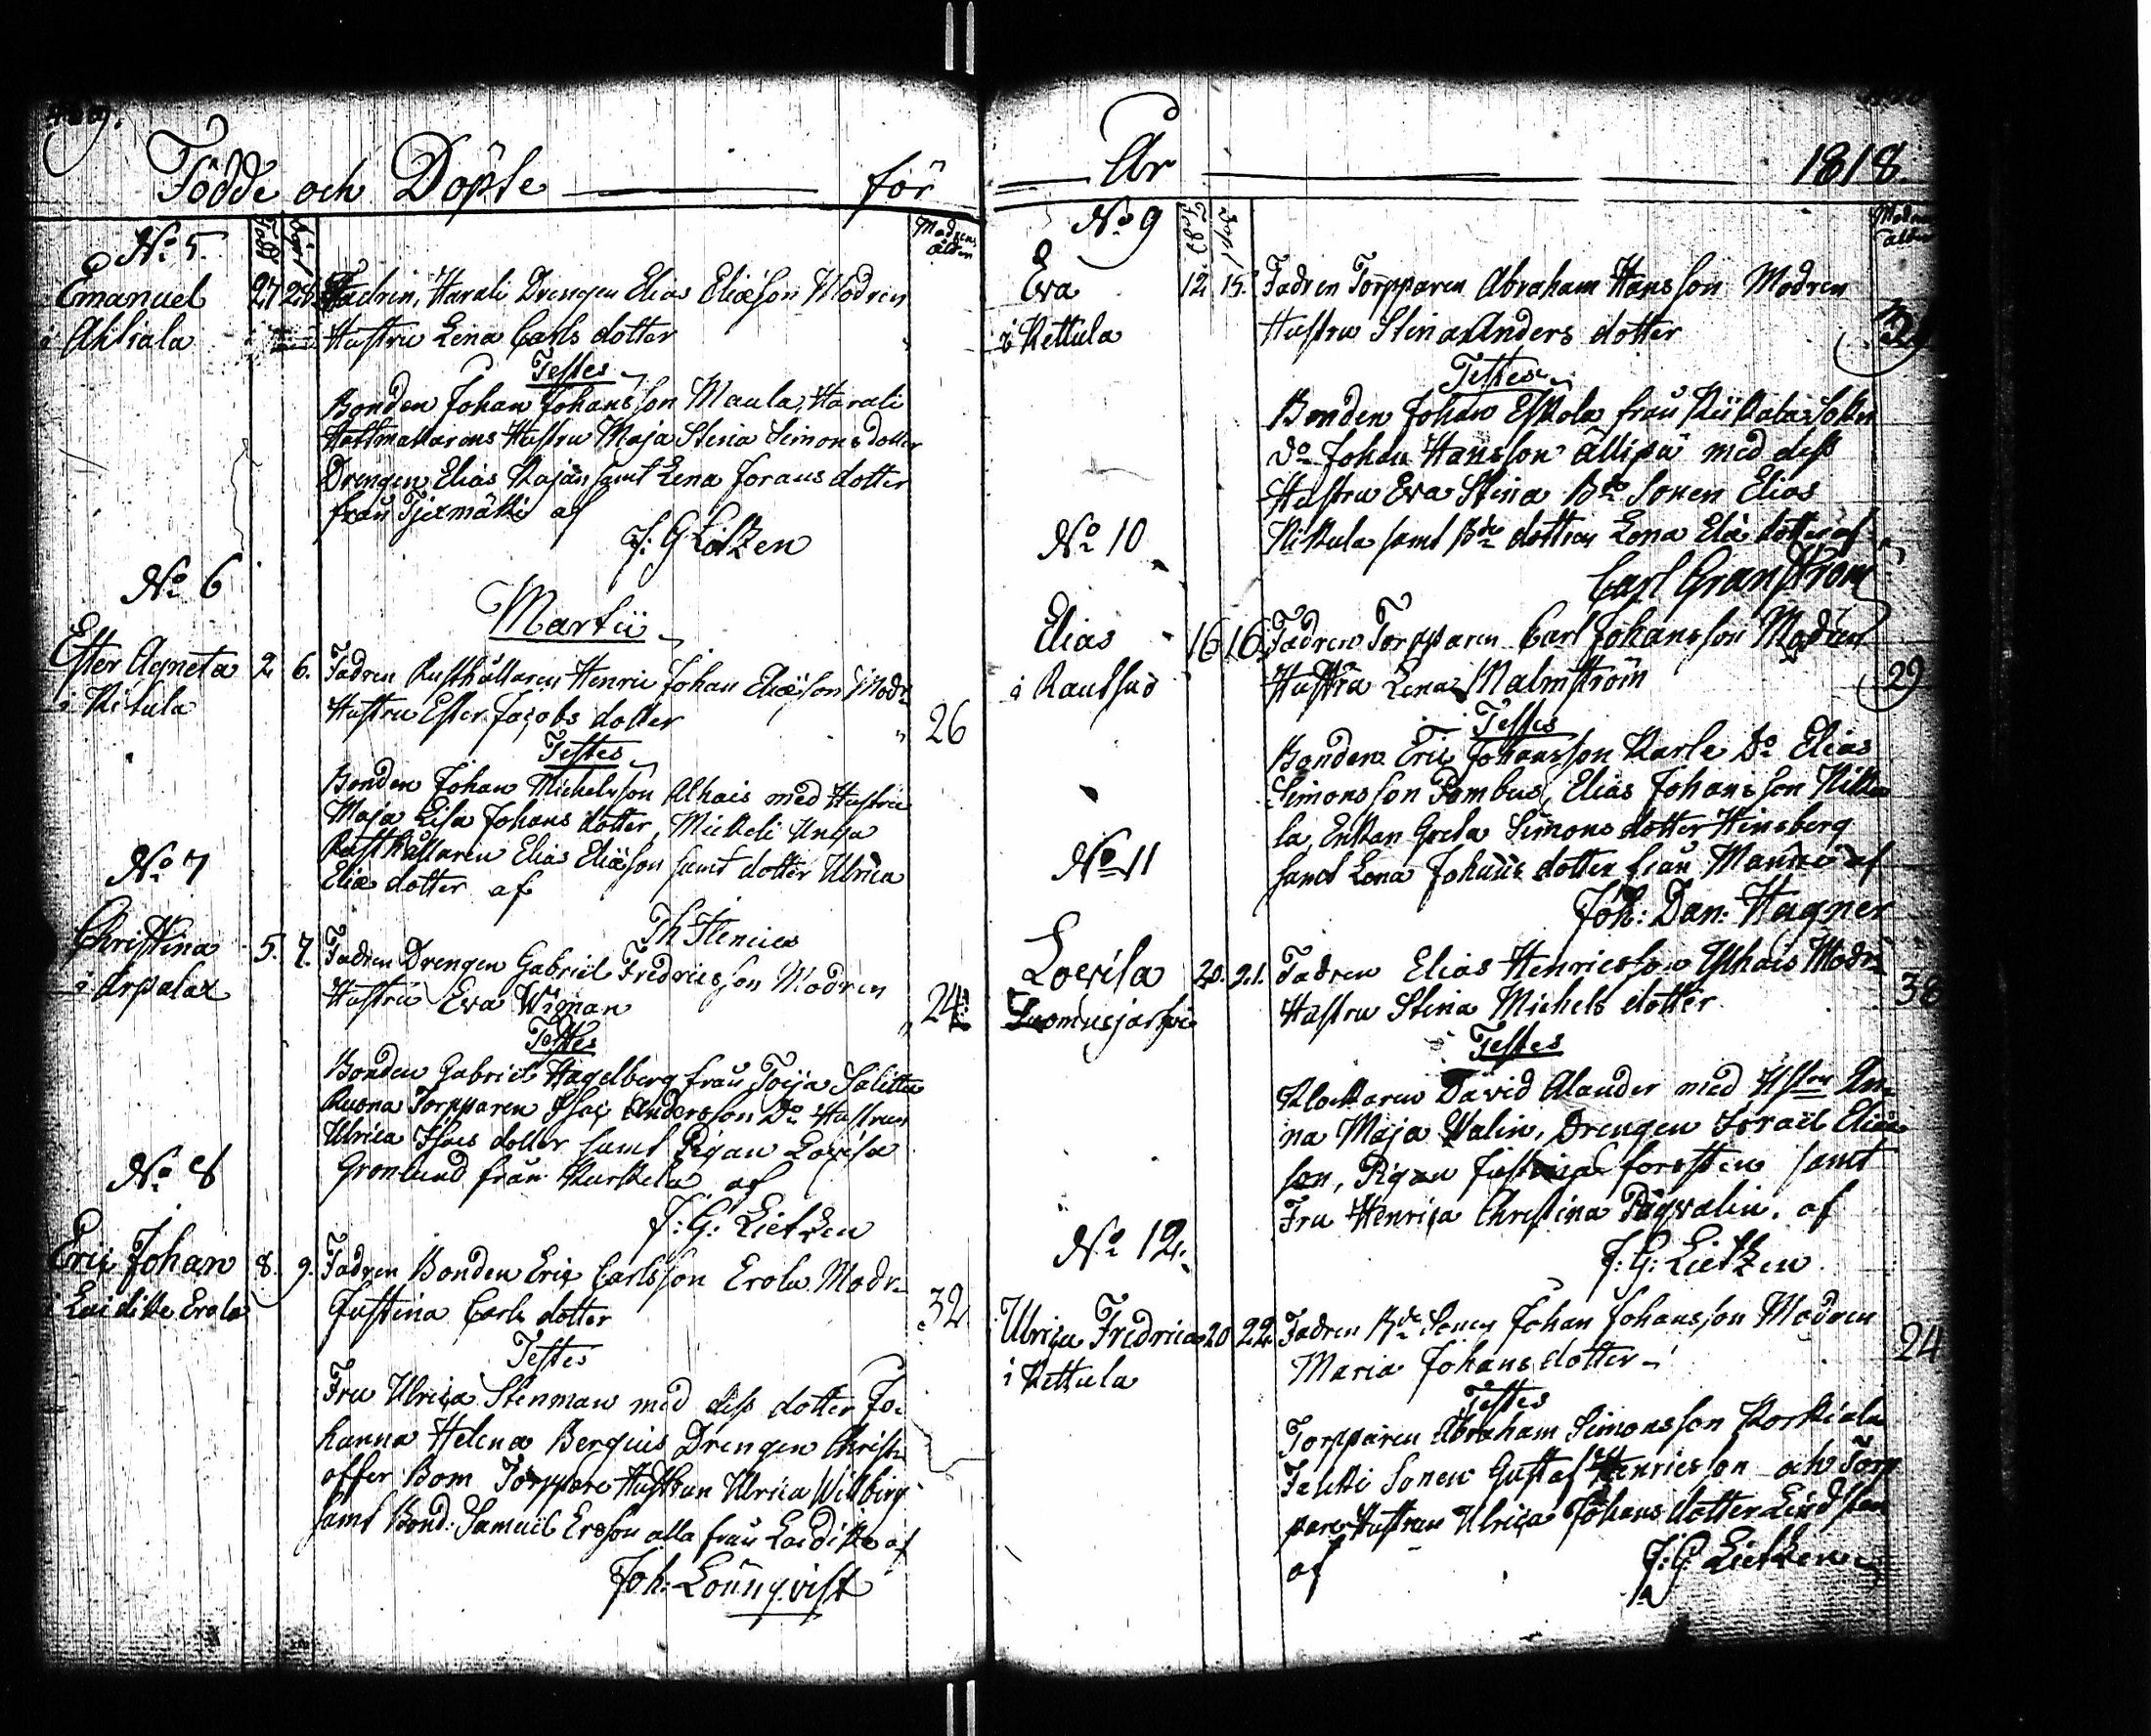 Födde och Döpte för
Född Döpt Modrens ålder
No 5.
Emanuel 27 28 Fadren, Harali Drengen Elias Eliæson Modren
i Ahtiala Hustru Lena Carls dotter
Testes
Bonden Johan Johansson Maula, Harali
Hattmakarens Hustru Maja Stina Simonsdotter
Drengen Elias Kajan samt Lena Joransdotter
från Tjexmäki af
J: G Lietzen
No 6
Martii
Ester Agneta 2 6. Fadren Rusthållaren Henric Johan Eliæson Modr.
i Kitula Hustru Ester Jacobs dotter 26
Testes
Bonden Johan Michelsson Alhais med Hustru
Maja Lisa Johans dotter, Mickeli Unga
Rusthållaren Elias Eliæson samt dotter Ulrica
Eliæ dotter af
Th Flenius
No 7
Christina 5. 7. Fadren Drengen Gabriel Fredricsson Modren
i Arpalax Hustru Eva Wiman 24
Testes
Bonden Gabriel Hagelberg från Toija Salitta
Kusna Torpparen Isac Andersson Do Hustrun
Ulrica Isacs dotter samt Pigan Lovisa
Gronlund från Kurkela af
J: G: Lietzen
No 8
Eric Johan 8. 9. Fadren Bonden Eric Carlsson Erola Modr.
i Laidike Erola Justina Carls dotter 32
Testes
Fru Ulrica Stenman med dess dotter Jo-
hanna Helena Bergius Drengen Christ-
offer Bom Torppare Hustrun Ulrica Wilberg
samt Bond: Samuel Ersson alla från Laidike af
Joh: Lönnqvist
År 1818.
Född Döpt Modrens ålder
No 9
Eva 12. 15. Fadren Torpparen Abraham Hansson Modren
i Kettula Hustru Stina Anders dotter
Testes
Bonden Johan Eskola från Kiikala Sokn
Do Johan Hansson Ällipä med dess
Hustru Eva Stina Bde Sonen Elias
Nikula samt Bde dottren Lena Eliæ dotter af
Carl Granström
No 10
Elias 16 16. Fadren Torpparen Carl Johansson Modren
i Rautsuo Hustru Lena Malmström 29
Testes
Bonden Eric Johansson Karle Do Elias
Simonsson Pombus, Elias Johansson Nikku
la, Enkan Greta Simons dotter Hinsberg
samt Lena Johans dotter från af
Joh: Dan: Hagner
No 11
Lovisa 20. 21. Fadren Elias Henricsson Yhais Modr.
Suomusjärfvi Hustru Stina Michels dotter 38
Testes
Klockaren David Alander med Hstru An-
na Maja Walin, Drengen Israel Eliæ
son, Pigan Justina Forsten samt
Fru Henrica Christina Pagvalin. af
J: G: Lietzen
No 12.
Ulrica Fredrica 20 22. Fadren Bde Sonen Johan Johansson Modren
i Kettula Maria Johans dotter 24
Testes
Torpparen Abraham Simonsson Korkiala
Talikki Sonen Gustaf Henricsson och Torp
pare Hustrun Ulrica Johans dotter
af J: G Lietzen